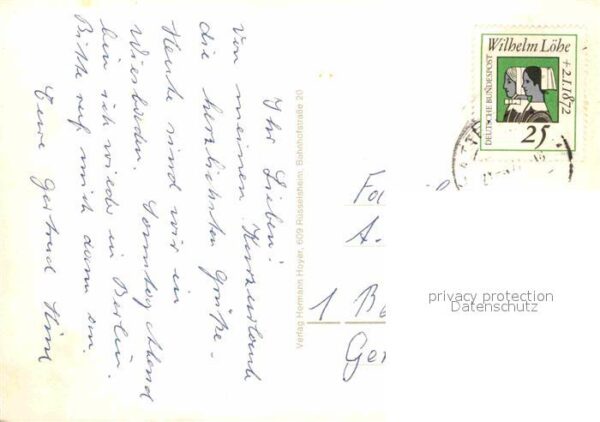 Ihr Lieben!
Von meinem Kurzurlaub
die herzlichsten Grüße.
Heute sind wir in
Wiesbaden. Sonntag Abend
bin ich wieder in Berlin.
Bitte ruf mich dann an.
Eure Gertrud
Verlag Hermann Hoyer, 609 Rüsselsheim, Bahnhofstraße 20
Wilhelm Löhe
+2.1.1872
DEUTSCHE BUNDESPOST
25
Fa
A.
1 Be
Ger
privacy protection
Datenschutz